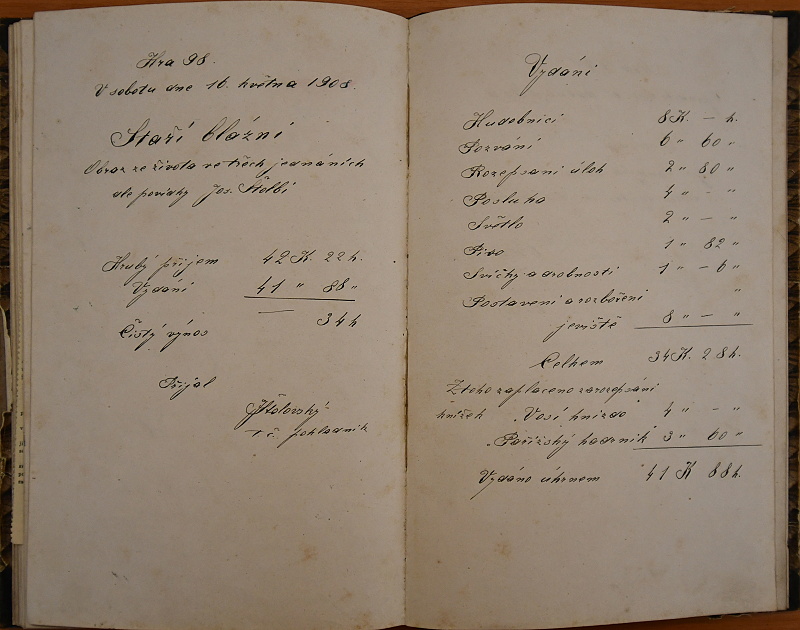 Hra 98.
V sobotu dne 16. května 1908.
Staří blázni
Obraz ze života ve třech jednáních
dle povídky Jos. Štolbi
Hrubý příjem 42 K. 22 h.
Vydání 41 " 88 "
Čistý výnos — 34 h
Přijal
t. č. pokladník
Vydání
Hudebníci 8 K. — h.
Pozvání 6 " 60 "
Rozepsaní úloh 2 " 80 "
Posluha 4 " - "
Světlo 2 " — "
Pivo 1 " 82 "
Svíčky a drobnosti 1 " — 6 "
Postavení a rozboření "
jeviště 8 " — "
Celkem 34 K. 28 h.
Z toho zaplaceno za rozepsání
knížek „Vosí hnízdo 4 " - "
„Pařížský hadrník 3 " 60 "
Vydáno úhrnem 41 K 88 h.